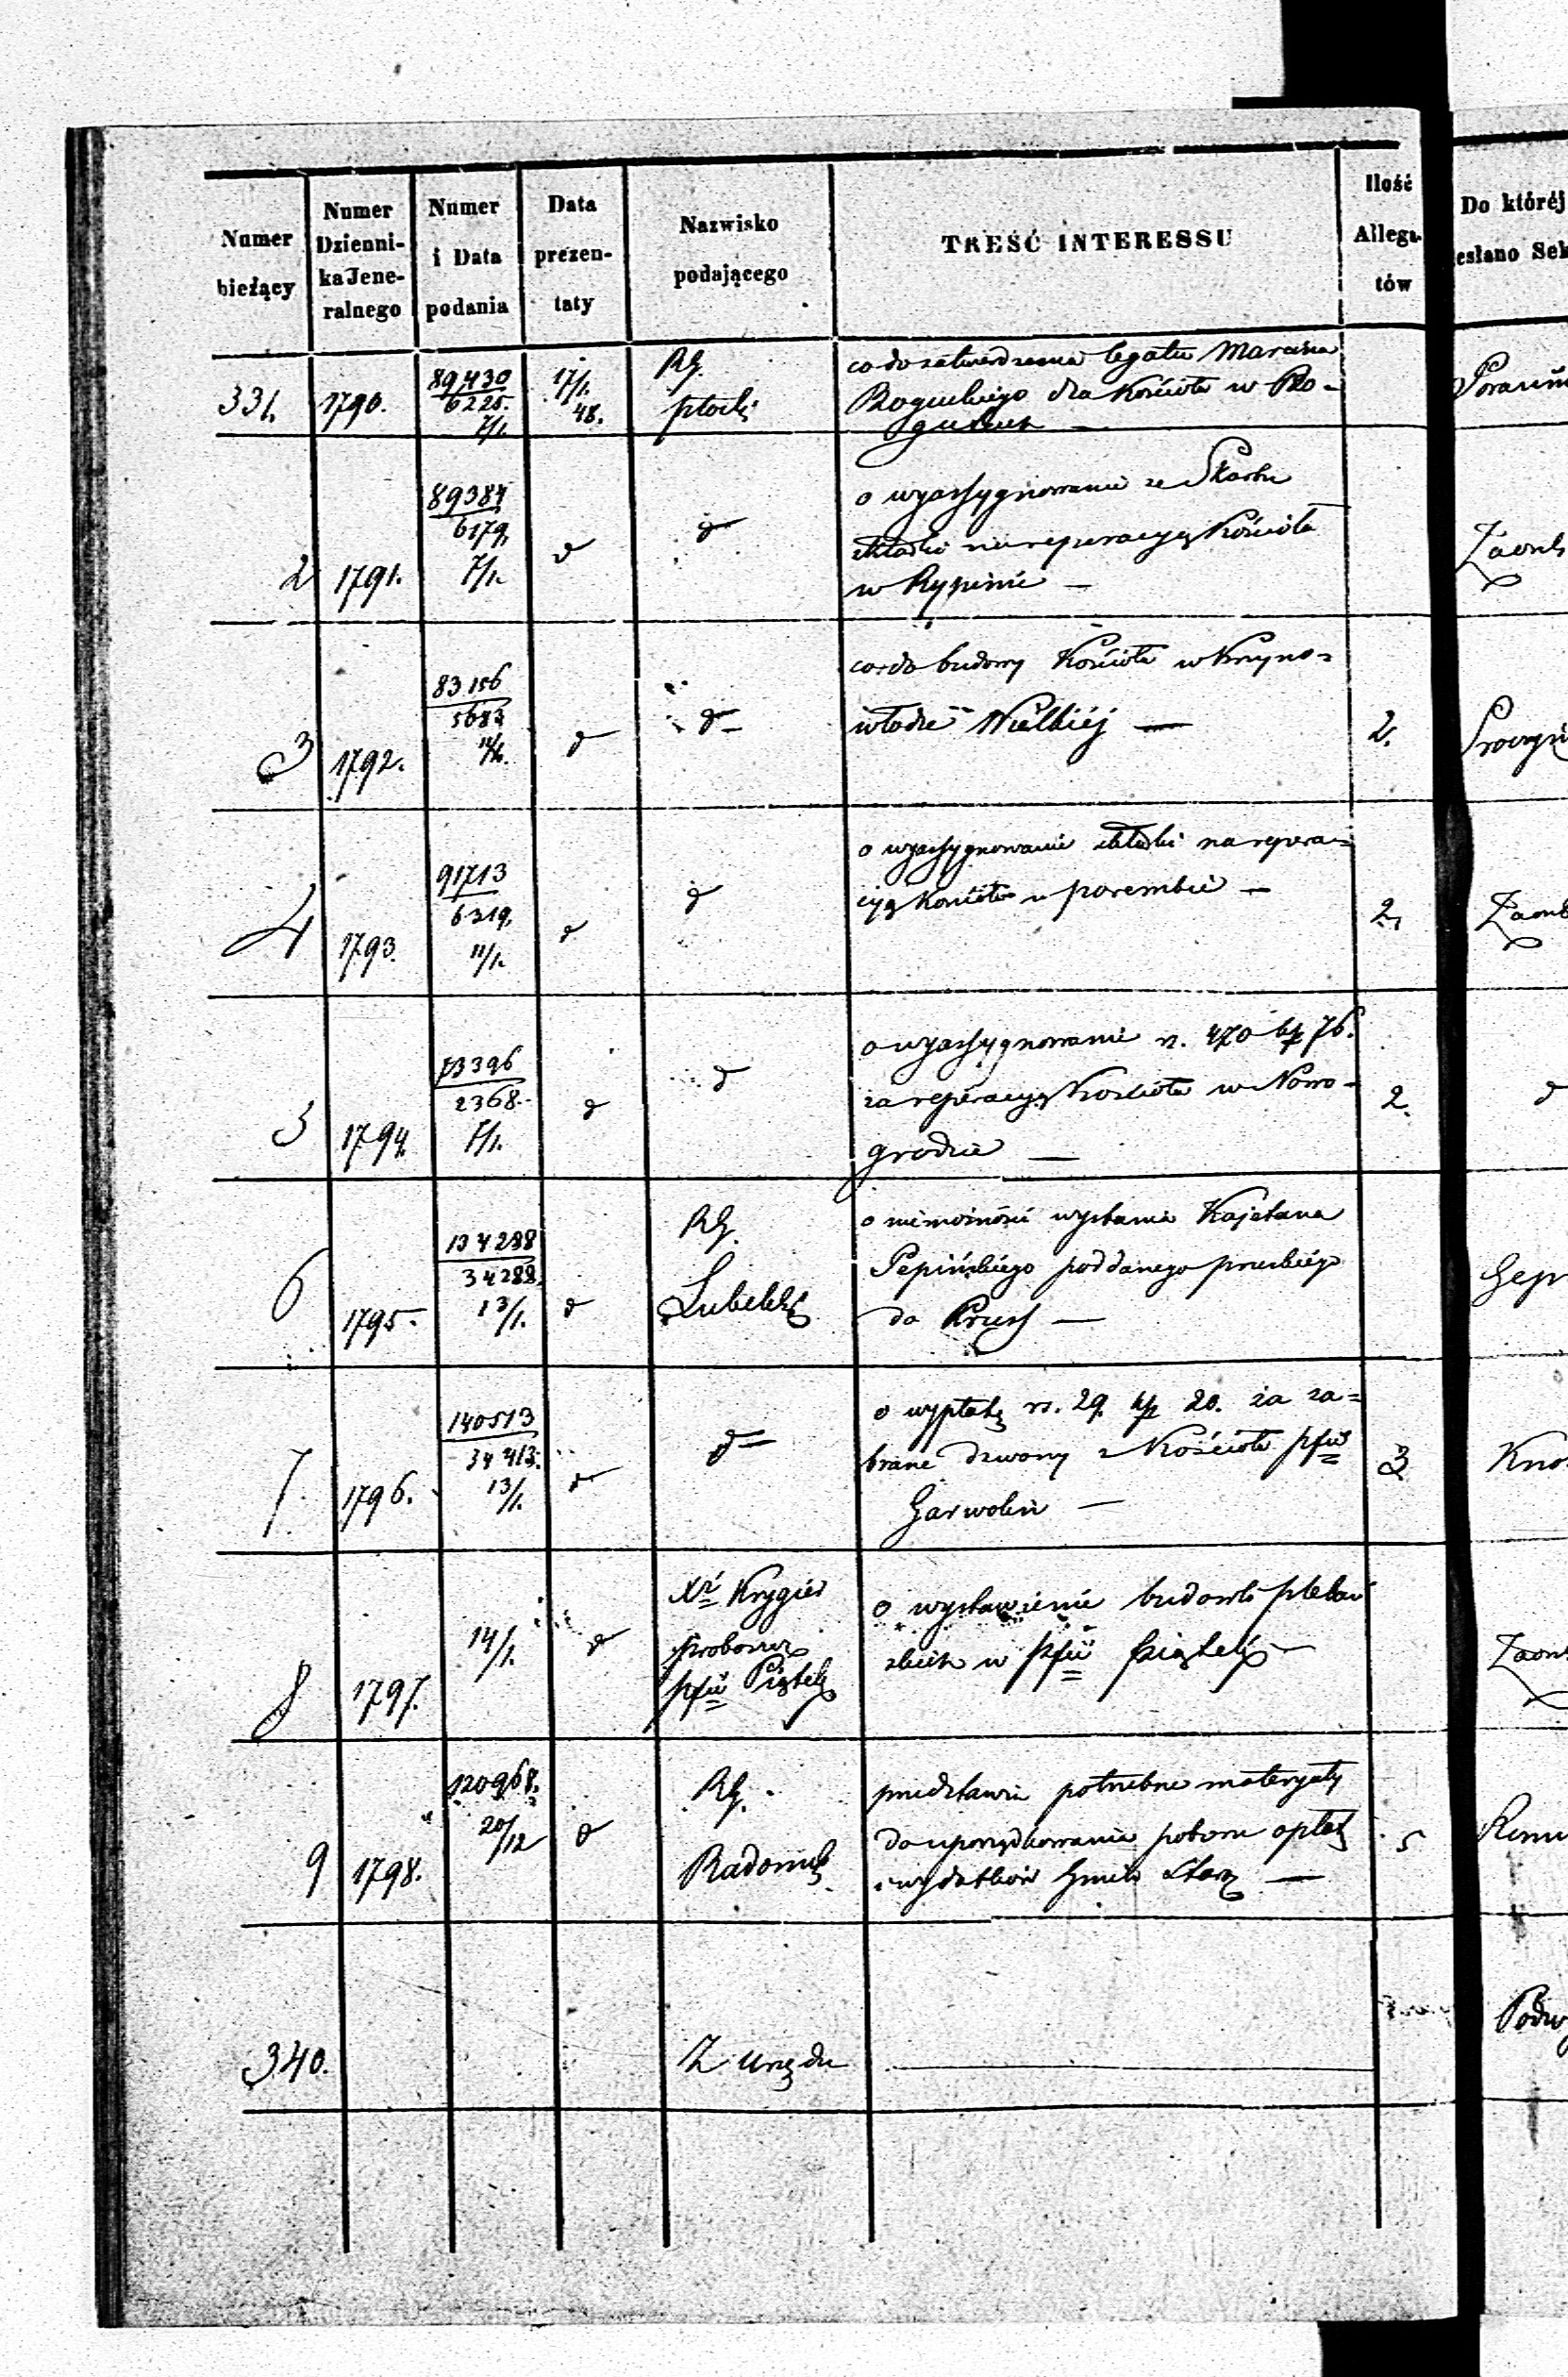 Numer bieżący
Numer Dzienni- ka Jene- ralnego
Numer i Data podania
Data prezen- taty
Nazwisko podającego
TREŚĆ INTERESSU
Ilość Allega- tów
Do któréj
esłano Sek
331. 1790. 89430 / 6225. 7/1. 17/1. 48. RG. płocki
co do zatwierdzenia legatu Marcina
Roguckiego dla Kościoła w Ro-
2 1791. 89384 / 6179. 7/1. d d
o wyassygnowanie ze Skarbu
składki na reperacyą Kościoła
w Rypinie —
3 1792. 83156 / 5683 d d 2.
co do budowy Kościoła w Krzyno=
włodze Wielkiéj —
4 1793. 91713 / 6319. 11/1. d d 2.
o wyassygnowanie składki na repera=
cyą Kościoła w porembie —
5 1794. 73396 / 2368. 7/1. d d 2. d
o wyassygnowanie rs. 470 kp 76.
za reperacyą Kościoła w Nowo-
grodzie —
6 1795. 134288 / 34288. 13/1. d RG. Lubelski
o niemożności wysłania Kajetana
Pepińskiego poddanego pruskiégo
do Pruss —
7. 1796. 140513 / 34413. 13/1. d d 3
o wypłatę rs. 29. kp 20. za za=
brane dzwony z Kościoła pfii
Garwolin —
8 1797. 14/1. d Xdz Krygier proboszcz pfii Piątek
o wystawienie budowli plebań
skich w pfii piątek —
9 1798. 120968. 20/12 d RG. Radomski 5
przedstawia potrzebne materyały
do uporządkowania poboru opłat
i wydatków Gmin Star. —
340. Z Urzędu